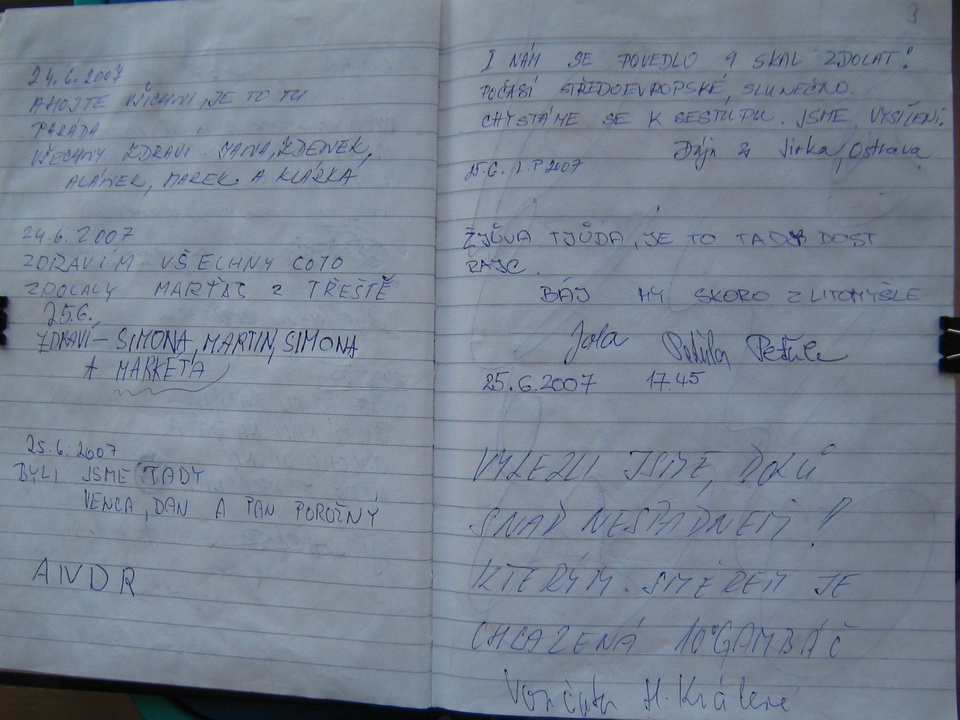 24.6.2007
AHOJTE VŠICHNI, JE TO TU
PARÁDA
VŠECHNY ZDRAVÍ JANA, ZDENEK,
MAREK A KLÁRKA
24.6.2007
ZDRAVÍM VŠECHNY COTO
ZDOLALY MARŤAS Z TŘEŠTĚ
25.6.
ZDRAVÍ – SIMONA, MARTIN, SIMONA
A MARKÉTA
25.6.2007
BYLI JSME TADY
VENCA, DAN A PAN POROČNÝ
ANDR
3
I NÁM SE POVEDLO 9 SKAL ZDOLAT!
POČASÍ STŘEDOEVROPSKÉ, SLUNEČNO.
CHYSTÁME SE K SESTUPU. JSME VYSÍLENI.
Dája & Jirka, Ostrava
25.6. L.P 2007
ŽJŮVA TJŮDA, JE TO TADY DOST
RAJC.
BÁJ MY SKORO Z LITOMYŠLE
Jola Peťule
25.6.2007 17.45
VYLEZLI JSME, DOLŮ
SNAD NESPADNEM!
KTERÝM SMĚREM JE
CHLAZENÁ 10° GAMBÁČ
H. Králové